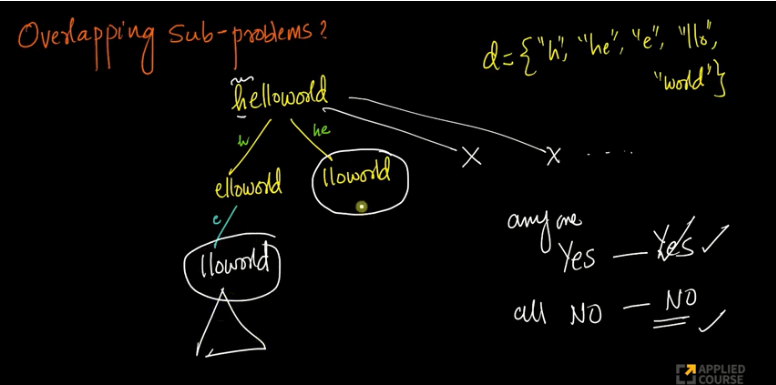 Overlapping sub-problems?
d = {"h", "he", "e", "llo",
"world"}
helloworld
h he
elloworld lloworld
x x ....
e
lloworld
any one
Yes — Yes ✓
all NO — NO ✓
APPLIED
COURSE